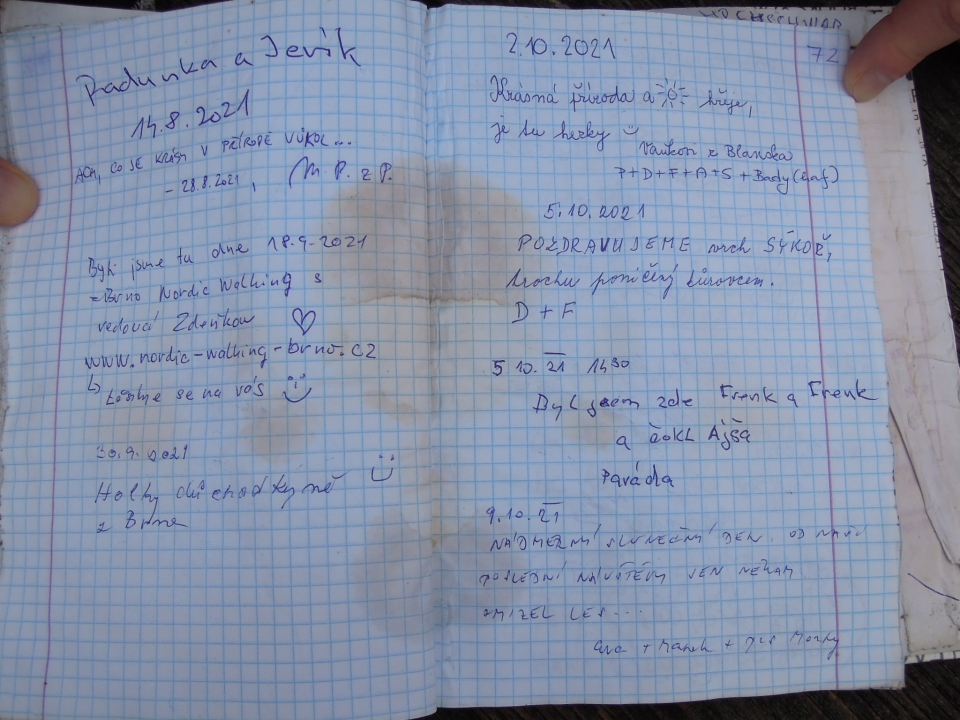 Radunka a Jevík
14.8.2021
ACH, CO SE KRÁS V PŘÍRODĚ VŮKOL...
– 28.8.2021, M. P. z P.
Byli jsme tu dne 18.9.2021
= Brno Nordic Walking s
vedoucí Zdeňkou
www.nordic-walking-brno.cz
↳ Těšíme se na vás
30.9.2021
Holky důchodkyně
z Brna
72
2.10.2021
Krásná příroda a hřeje,
je tu hezky
z Blanska
P+D+F+A+S + Bady (haf)
5.10.2021
POZDRAVUJEME vrch SÝKOŘ,
trochu poničený kůrovcem.
D + F
5 10. 21 14 30
Byl jsem zde Frenk a Frenk
a čokl Ajša
Paráda
9.10.21
NÁDHERNÝ SLUNEČNÝ DEN. OD NAŠÍ
POSLEDNÍ NÁVŠTĚVY JEN NĚKAM
ZMIZEL LES...
+ Marek +